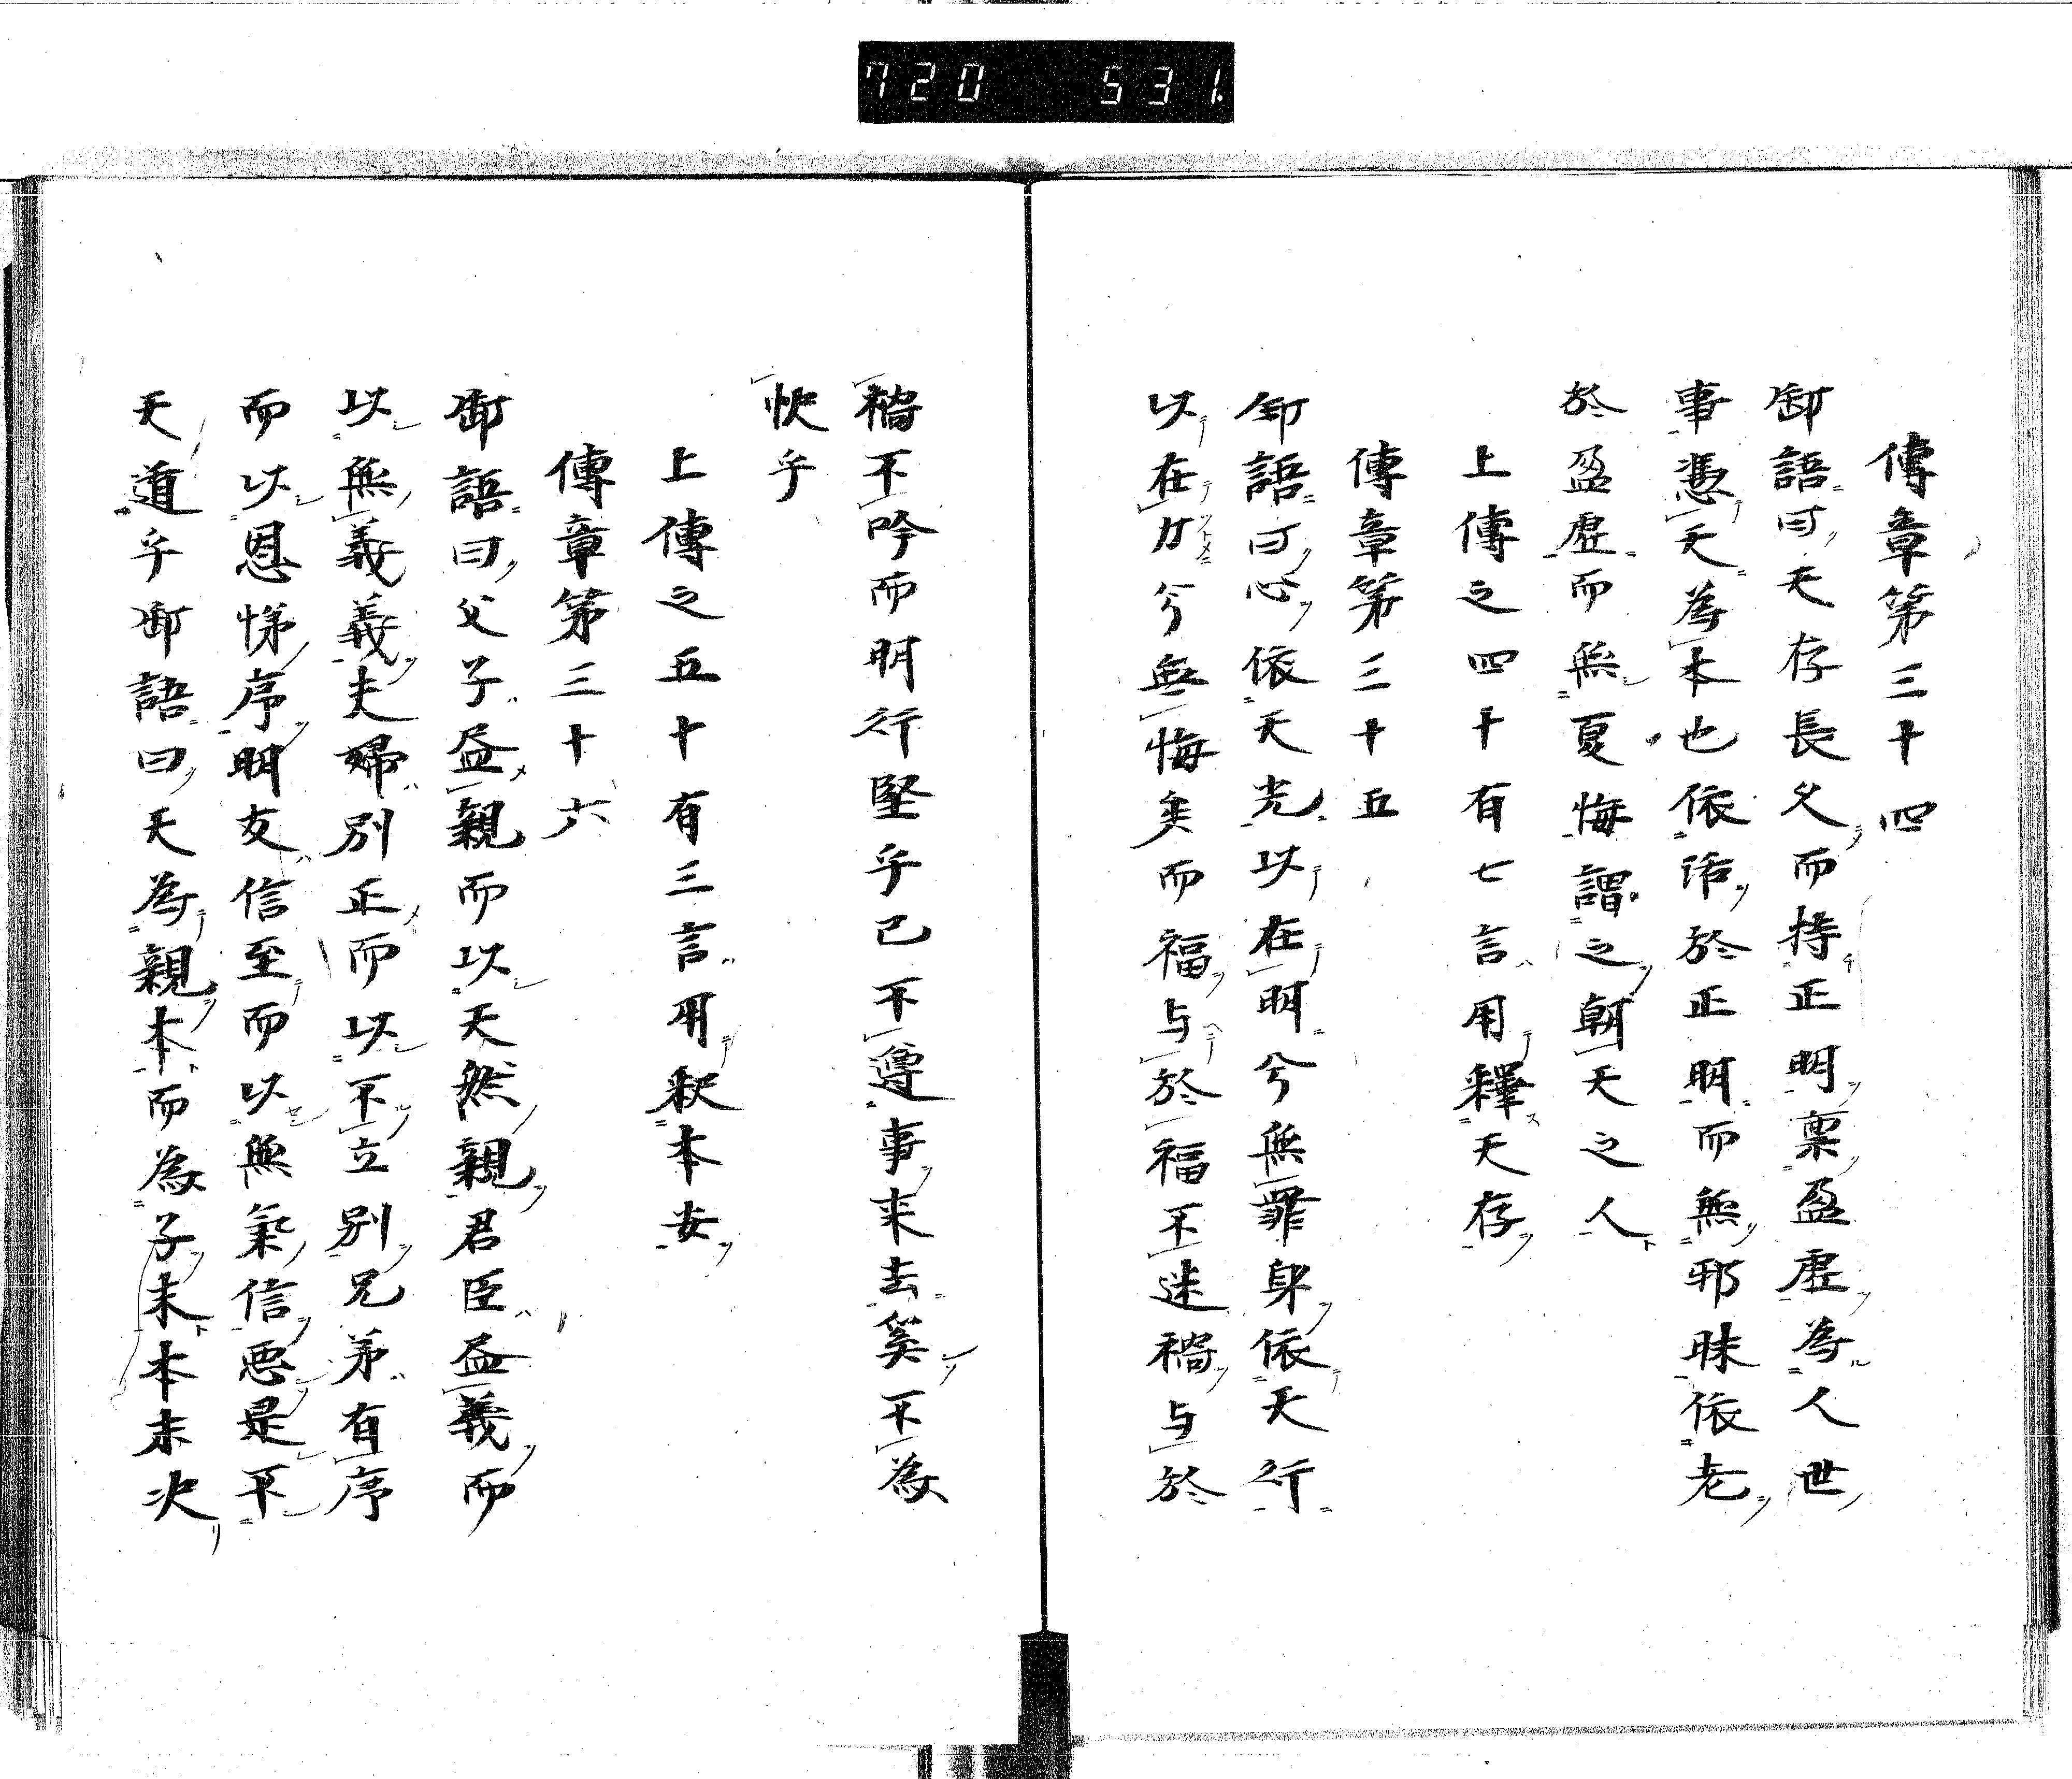 720 531.
傳章第三十四
御語曰天存長父而持正明稟盈虛為人世
事憑天為本也依活於正明而無邪昧依老
於盈虛而無夏悔謂之朝天之人
上傳之四十有七言用釋天存
傳章第三十五
御語曰心依天光以在明兮無罪身依天行
以在力兮無悔矣而福与於福不迷禍与於
禍不吟而明行堅乎己不遵事来去奚不為
快乎
上傳之五十有三言用釈本安
傳章第三十六
御語曰父子益親而以天然親君臣益義而
以無義義夫婦別正而以不立別兄弟有序
而以恩悌序朋友信至而以無氣信悪是不
天道乎御語曰天為親本而為子末本末次